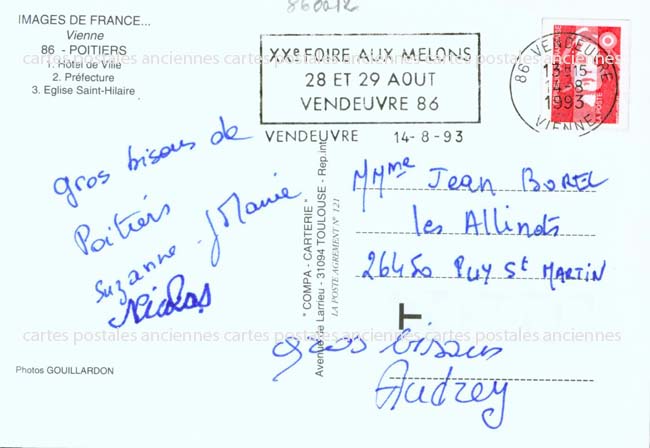 860012
IMAGES DE FRANCE...
Vienne
86 - POITIERS
1. Hôtel de Ville
2. Préfecture
3. Eglise Saint-Hilaire
XXe FOIRE AUX MELONS
28 ET 29 AOUT
VENDEUVRE 86
VENDEUVRE 14-8-93
86 VENDEUVRE
13H15
14-8-
1993
VIENNE
cartes postales anciennes cartes postales anciennes cartes postales anciennes
gros bisous de
Poitiers
Suzanne - Marie
Nicolas
MMme Jean BOREL
les Allinots
26450 PUY St MARTIN
gros bisous
Audrey
" COMPA - CARTERIE "
Avenue de Larrieu - 31094 TOULOUSE - Rep.int
LA POSTE AGREMENT N° 121
T
cartes postales anciennes cartes postales anciennes cartes postales anciennes
Photos GOUILLARDON